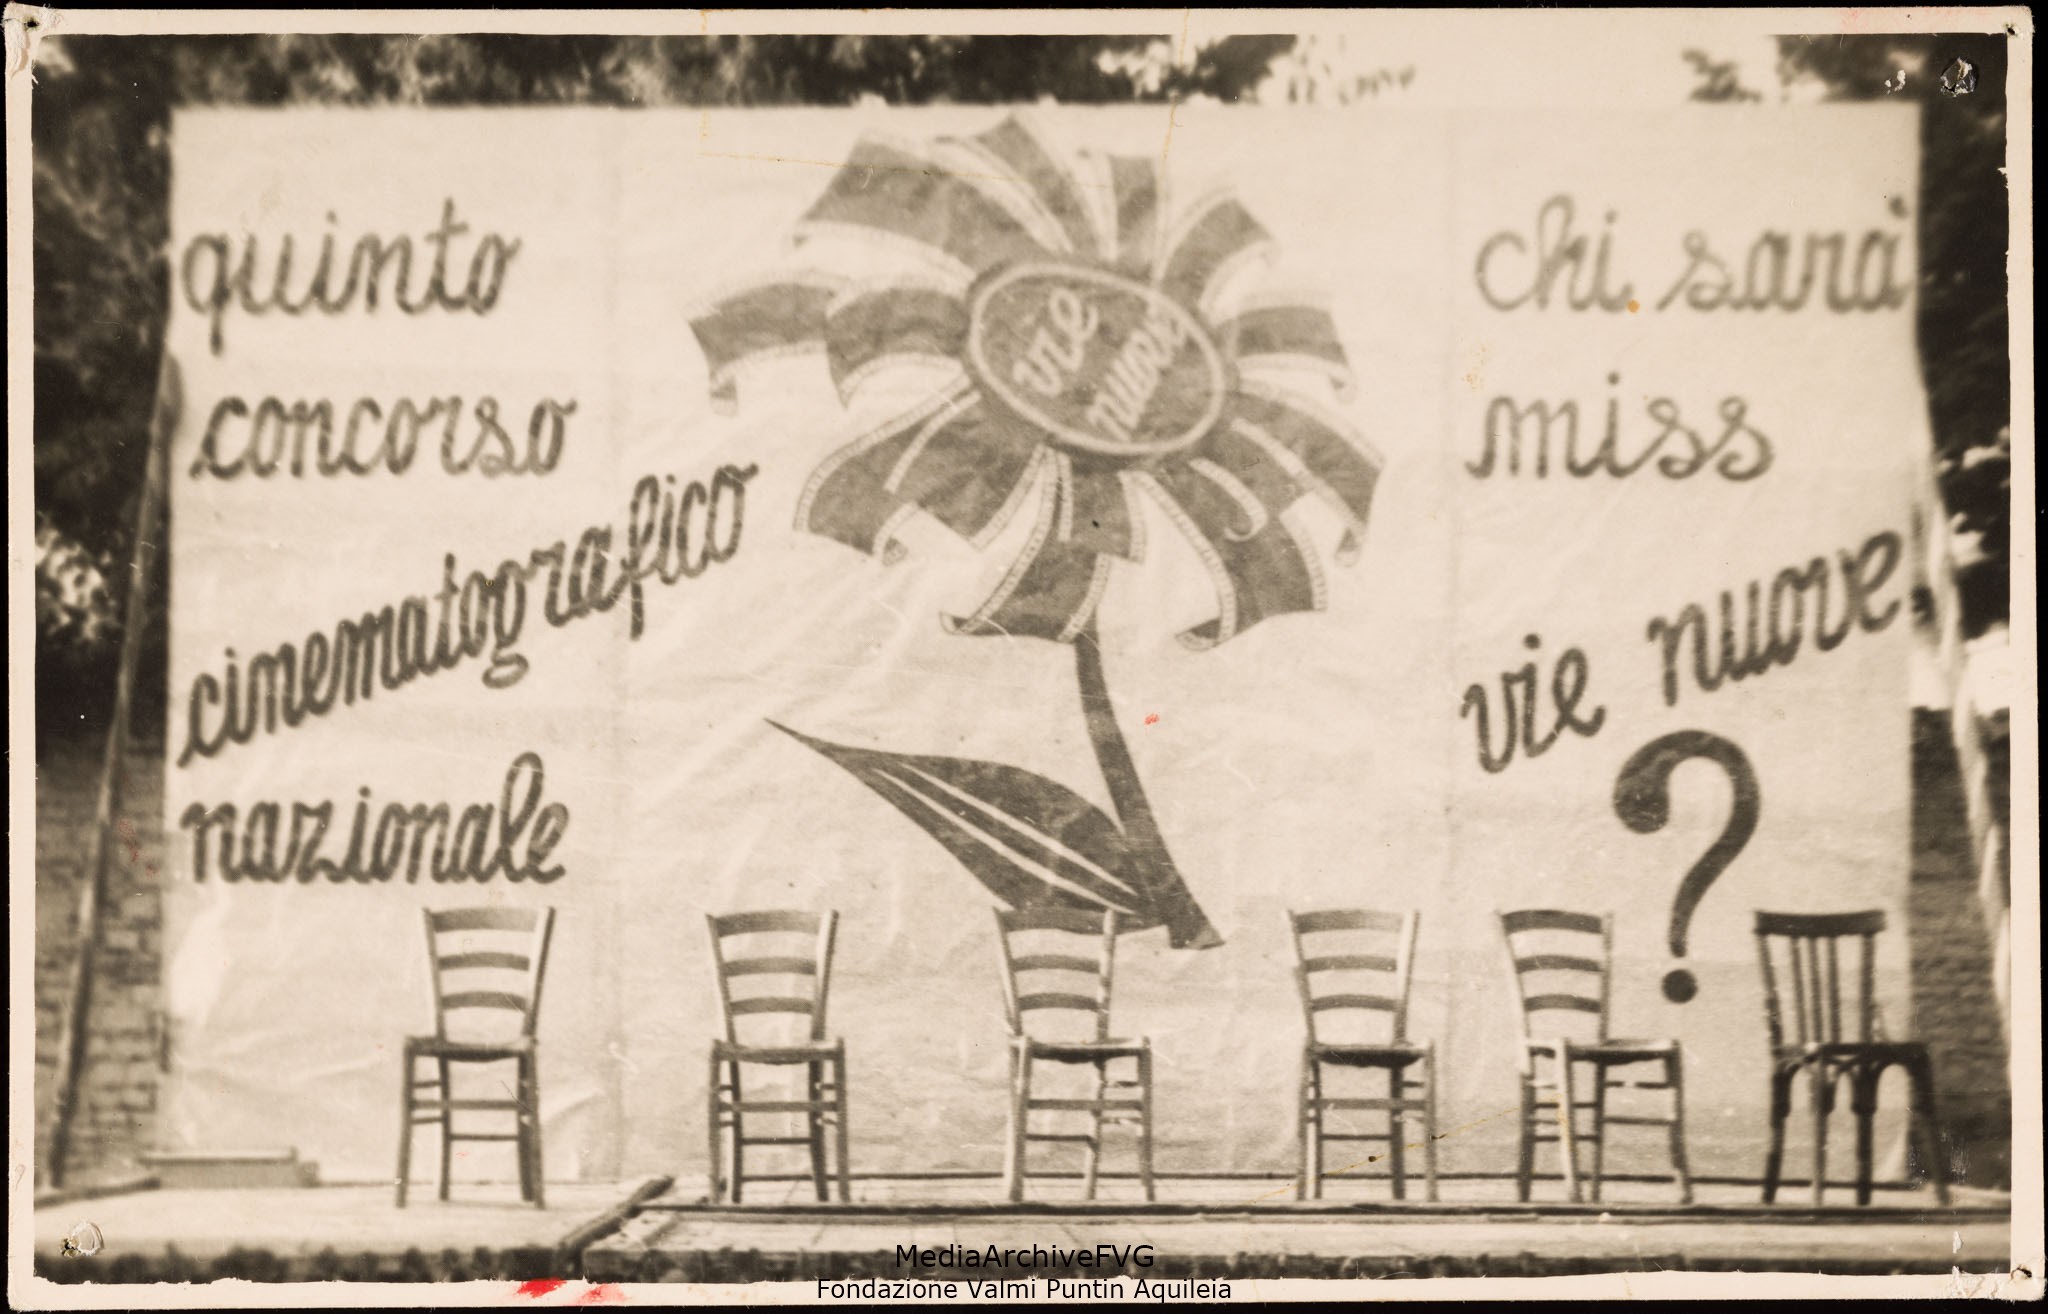 quinto
concorso
cinematografico
nazionale
vie
nuove
chi sarà
miss
vie nuove
?
MediaArchiveFVG
Fondazione Valmi Puntin Aquileia